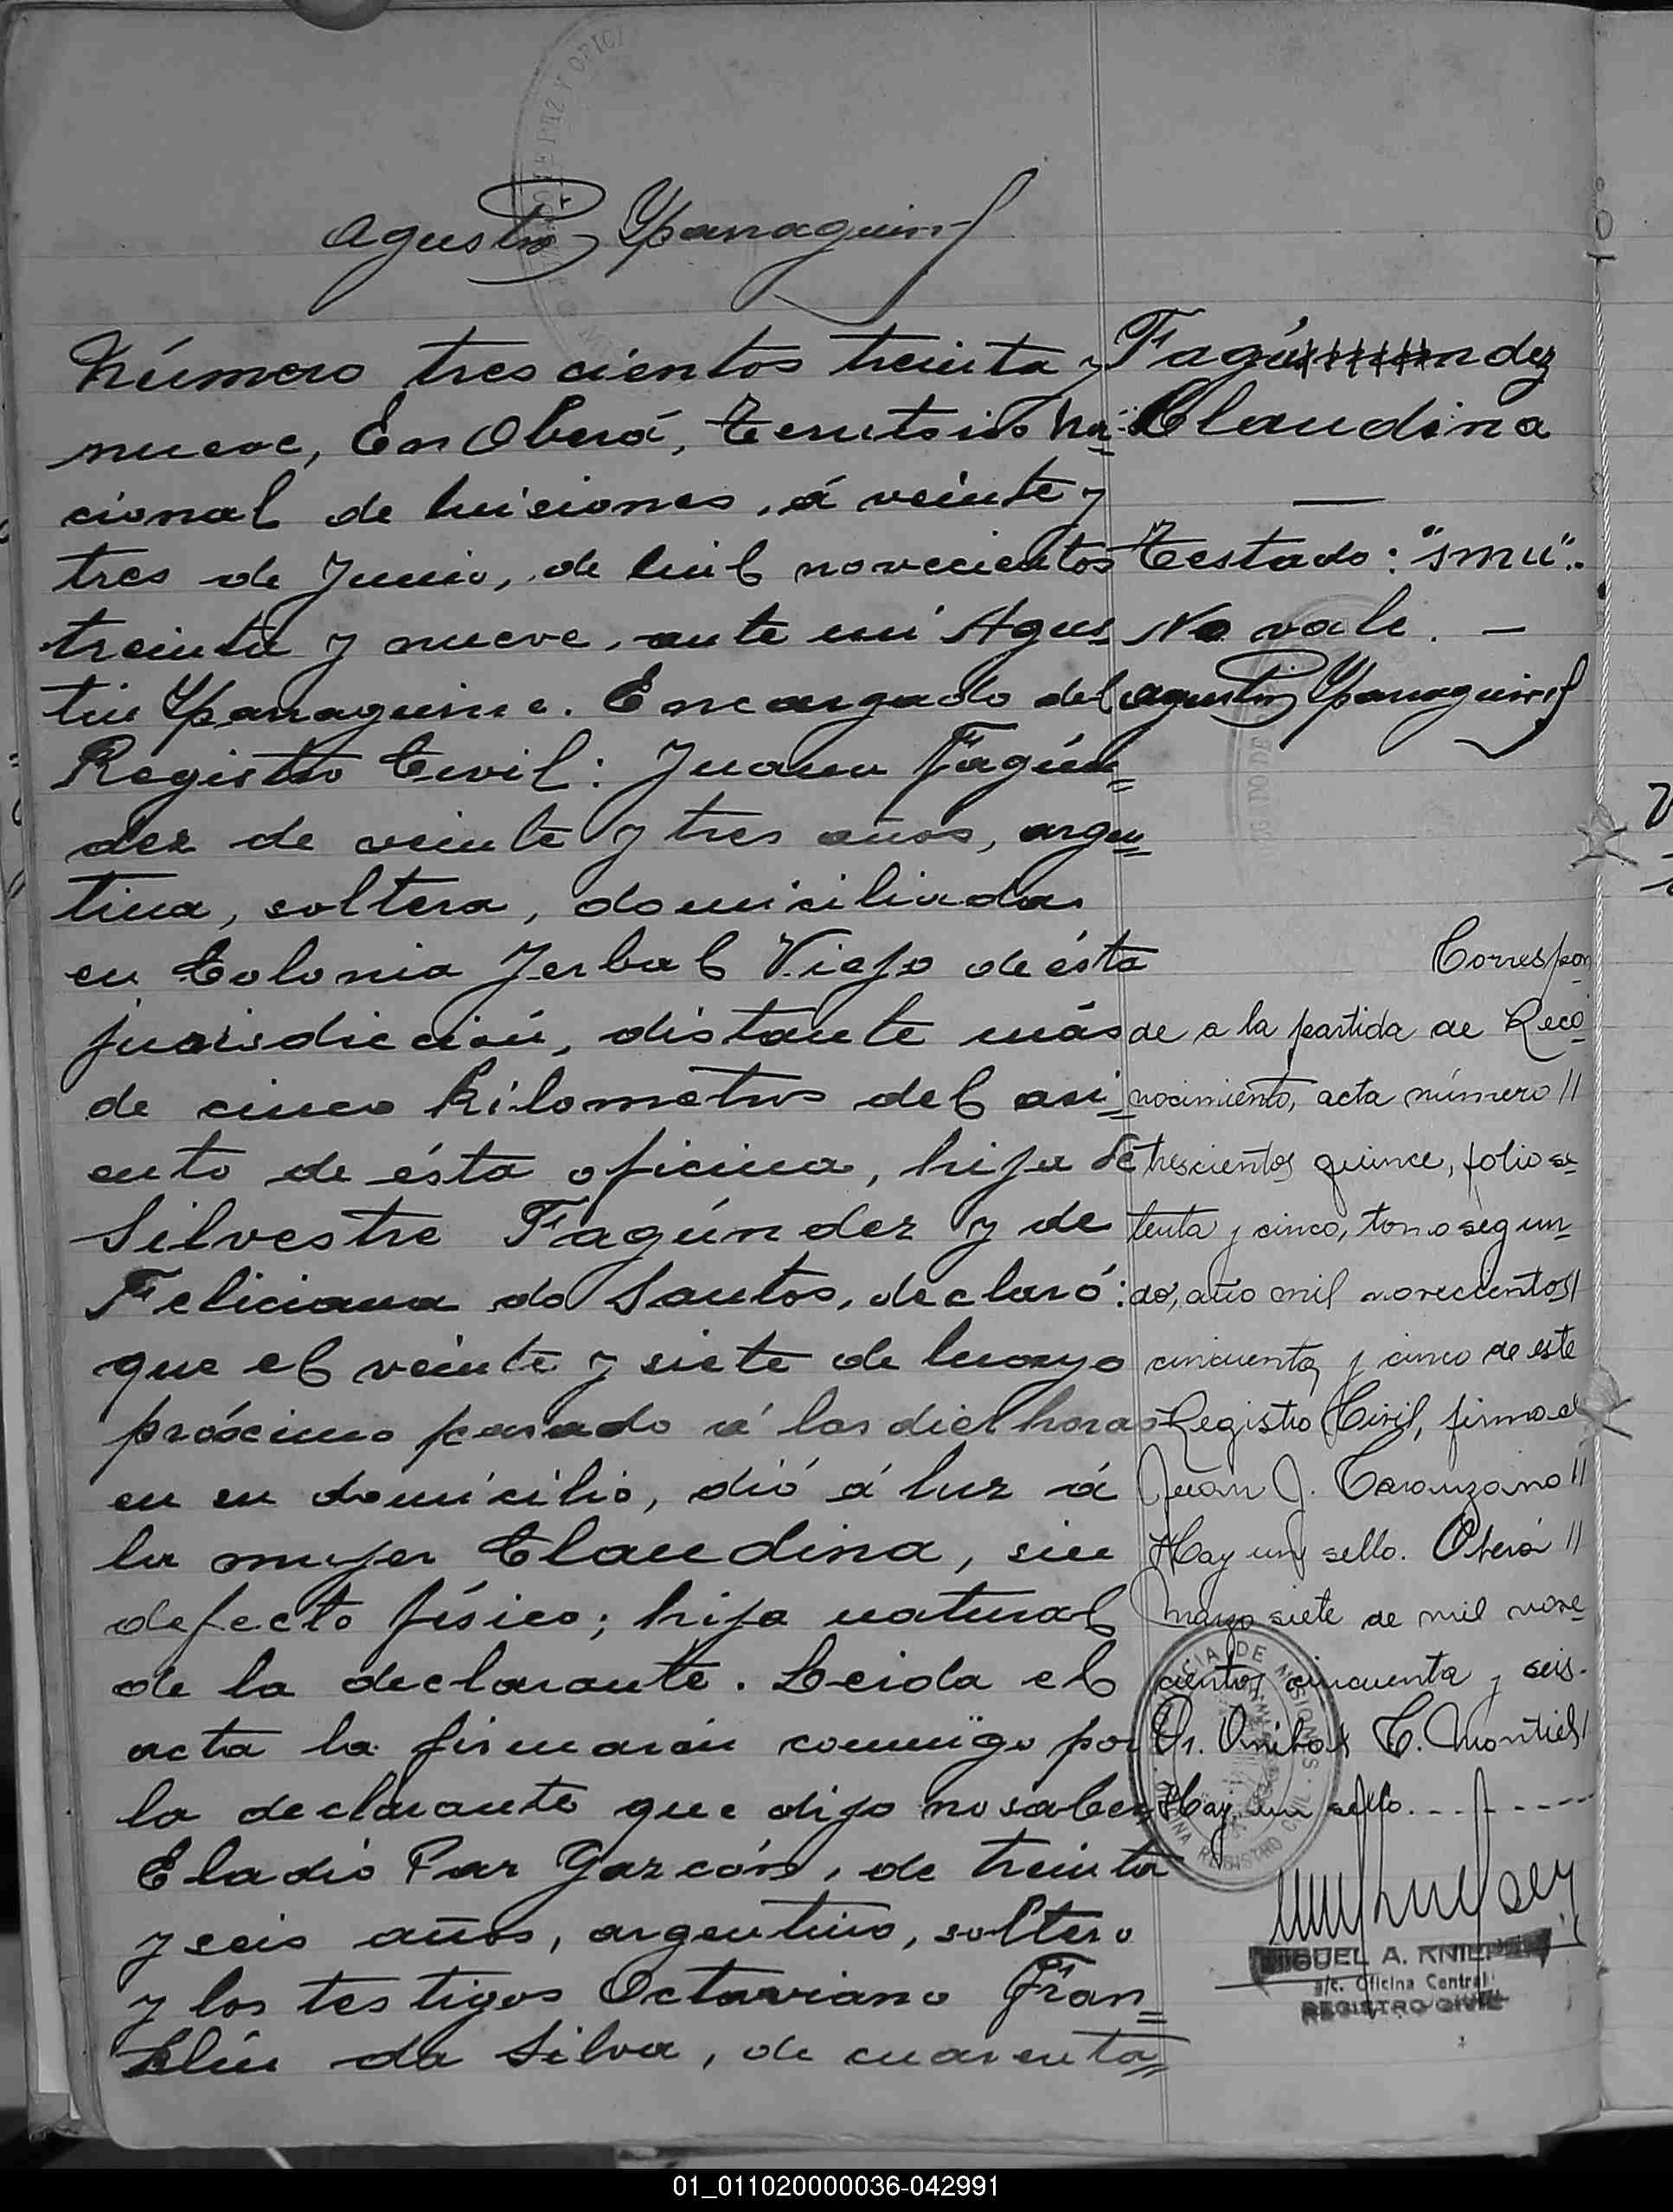 Agustin Yparraguirre
Número trescientos treinta y
nueve, En Oberá, Territorio Na-
cional de Misiones, á veinte y
tres de Junio, de mil novecientos
treinta y nueve, ante mi Agus-
tin Yparraguirre. Encargado del
Registro Civil: Juana Fagún=
dez de veinte y tres años, argen=
tina, soltera, domiciliada
en Colonia Yerbal Viejo de ésta
jurisdicción, distante más
de cinco kilometros del asi=
ento de ésta oficina, hija de
Silvestre Fagúndez y de
Feliciana do Santos, declaró:
que el veinte y siete de mayo
próximo pasado á las diez horas
en su domicilio, dió á luz á
la mujer Claudina, sin
defecto físico; hija natural
de la declarante. Leida el
acta la firmarán conmigo por
la declarante que dijo no saber,
Eladio Paz Garzón, de treinta
y seis años, argentino, soltero
y los testigos Octaviano Fran=
klin da Silva, de cuarenta=
Fagúndez
Claudina
Testado: "smu".
No vale. —
Agustin Yparraguirre
Correspon
de a la partida de Reco
nocimiento, acta número //
trescientos quince, folio se-
tenta y cinco, tomo segun-
do, año mil novecientos//
cincuenta y cinco de este
Registro Civil, firmado
Juan J. Caranzano //
Hay un sello. Oberá //
marzo siete de mil nove-
cientos cincuenta y seis.
Dr. Anibal C. Montiel/
Hay un sello.-------
PROVINCIA DE MISIONES
REGISTRO CIVIL
MIGUEL A. KNIEPER
a/c. Oficina Central
REGISTRO CIVIL
01_011020000036-042991